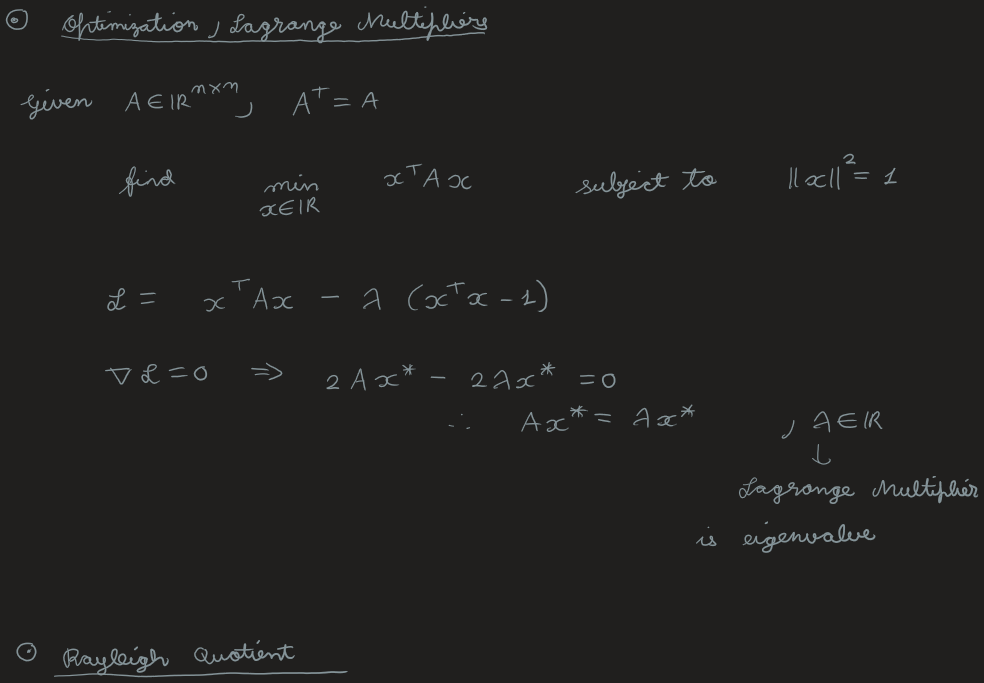 ⊙ Optimization, Lagrange Multipliers
Given A ∈ ℝⁿˣⁿ, Aᵀ = A
find min x∈ℝ xᵀAx subject to ||x||² = 1
ℒ = xᵀAx − λ (xᵀx − 1)
∇ℒ = 0 ⇒ 2Ax* − 2λx* = 0
∴ Ax* = λx* , λ ∈ ℝ
↓
Lagrange Multiplier
is eigenvalue
⊙ Rayleigh Quotient